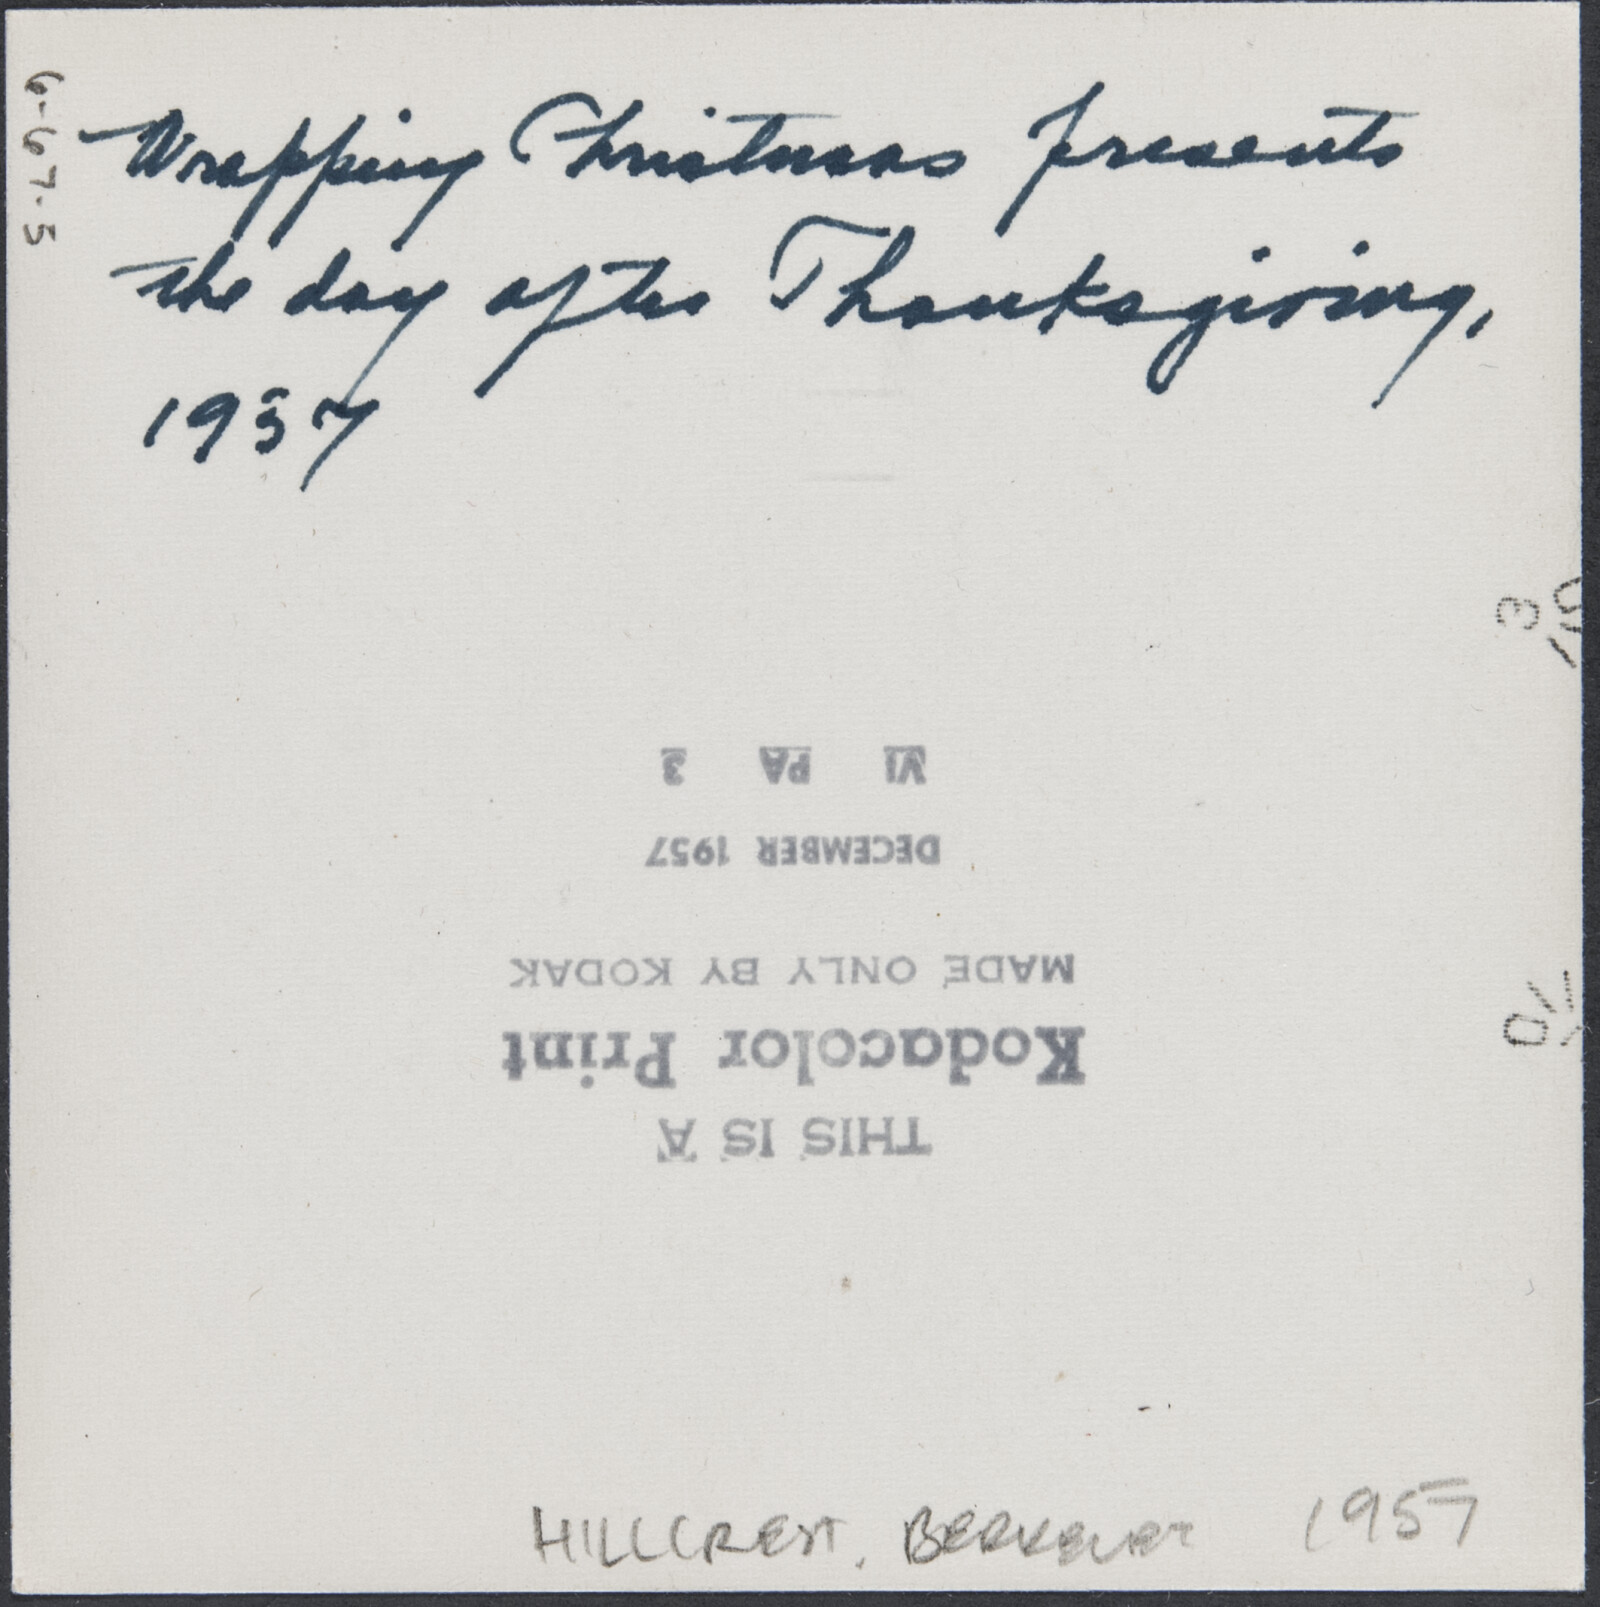 Wrapping Christmas presents
the day after Thanksgiving,
1957
6-67-5
VI PA 3
DECEMBER 1957
MADE ONLY BY KODAK
Kodacolor Print
THIS IS A
HILLCREST, BERKELEY 1957